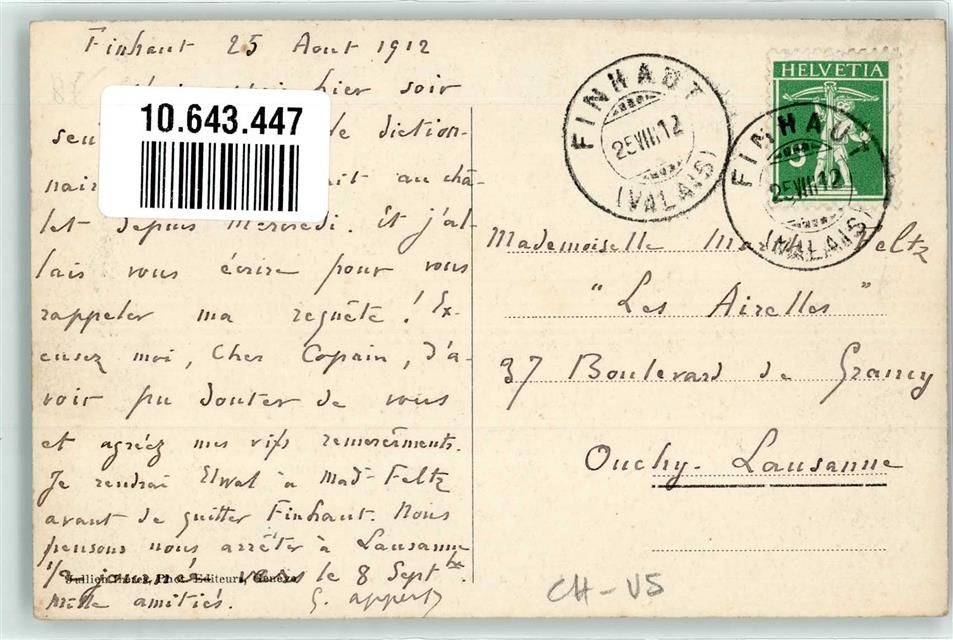 Finhaut 25 Aout 1912
hier soir
seu
de diction-
nair
ait au châ-
let depuis Mercredi. Et j'al-
lais vous écrire pour vous
rappeler ma requête! Ex-
cusez moi, Cher Copain, d'a-
voir pu douter de vous
et agréez mes vifs remerciements.
Je rendrai Elwal à Mad. Feltz
avant de quitter Finhaut. Nous
pensons nous arrêter à Lausanne
vers le 8 Septbre.
Mille amitiés. G. appertz
Jullien frères, Phot.-Editeurs, Genève
10.643.447
FINHAUT
25.VIII.12
(VALAIS)
HELVETIA
5
FINHAUT
25.VIII.12
(VALAIS)
Mademoiselle Feltz
"Les Airelles"
37 Boulevard de Grancy
Ouchy-Lausanne
CH-VS